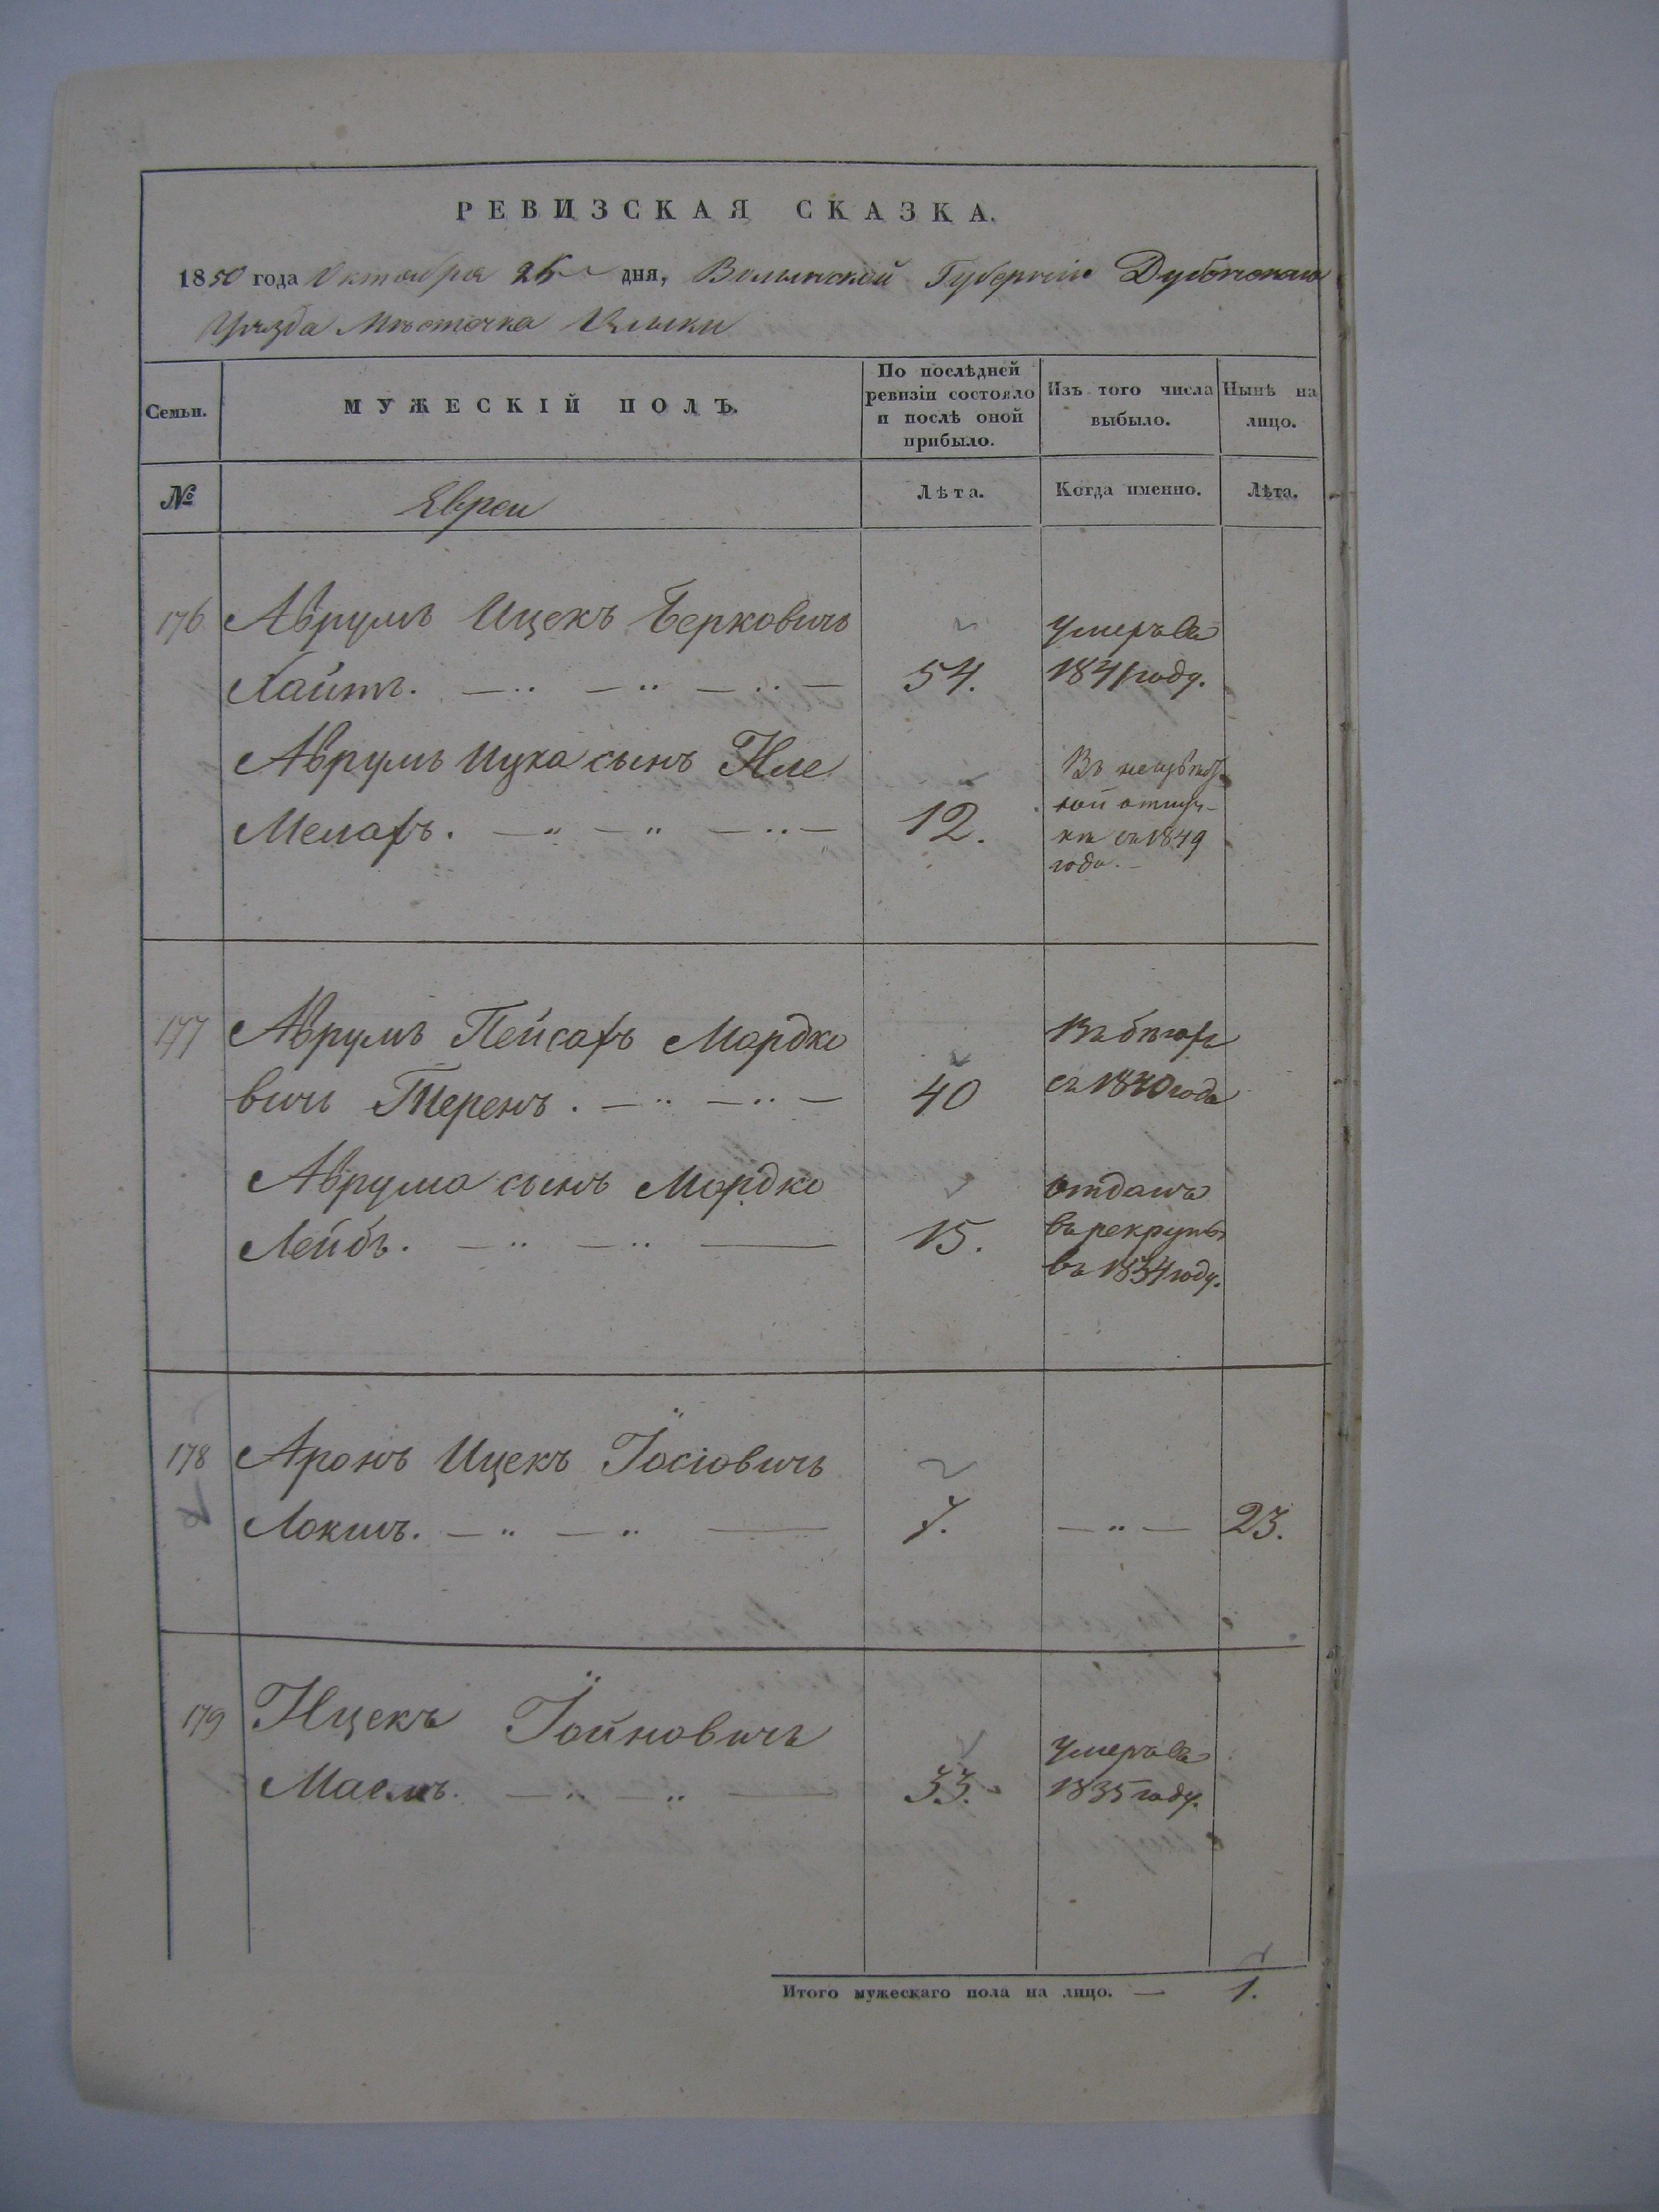 РЕВИЗСКАЯ СКАЗКА.
1850 года Октября 25 дня, Волынской Губернiи Дубенскаго
Уѣзда Мѣстечка Олыки
Семьи.
МУЖЕСКIЙ ПОЛЪ.
По послѣдней
ревизiи состояло
и послѣ оной
прибыло.
Изъ того числа
выбыло.
Нынѣ на
лицо.
№
Евреи
Лѣта.
Когда именно.
Лѣта.
176 Аврумъ Ицекъ Берковичъ
Хайтъ. 54.
умеръ въ
1841 году.
Аврумъ Ицка сынъ
Мелахъ. 12.
Въ неизвѣст
ной отлуч-
кѣ съ 1849
года.
177 Аврумъ Пейсахъ Мордко
вичъ Теренъ. 40
Въ бѣгахъ
съ 1840 года
Аврума сынъ Мордко
Лейбъ. 15.
отданъ
въ рекруты
въ 1834 году.
178 Аронъ Ицекъ Iосiовичъ
Локшъ. 7. 23.
179 Ицекъ Iойновичъ
33.
умеръ въ
1835 году.
Итого мужескаго пола на лицо. — 1.